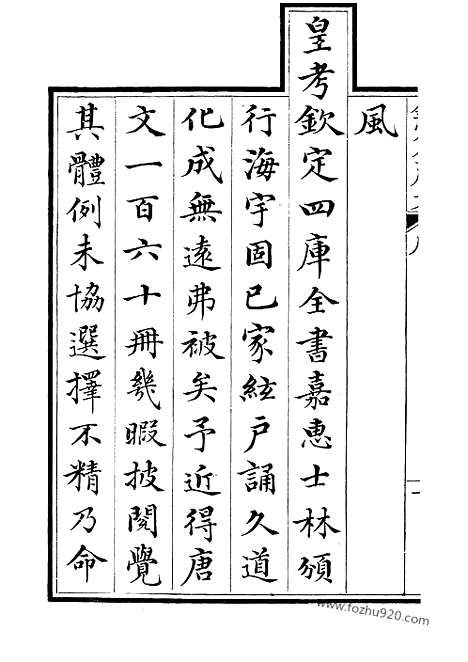 風
皇考欽定四庫全書嘉惠士林頒
行海宇固已家絃戶誦久道
化成無遠弗被矣予近得唐
文一百六十冊幾暇披閱覺
其體例未協選擇不精乃命
www.fozhu920.com